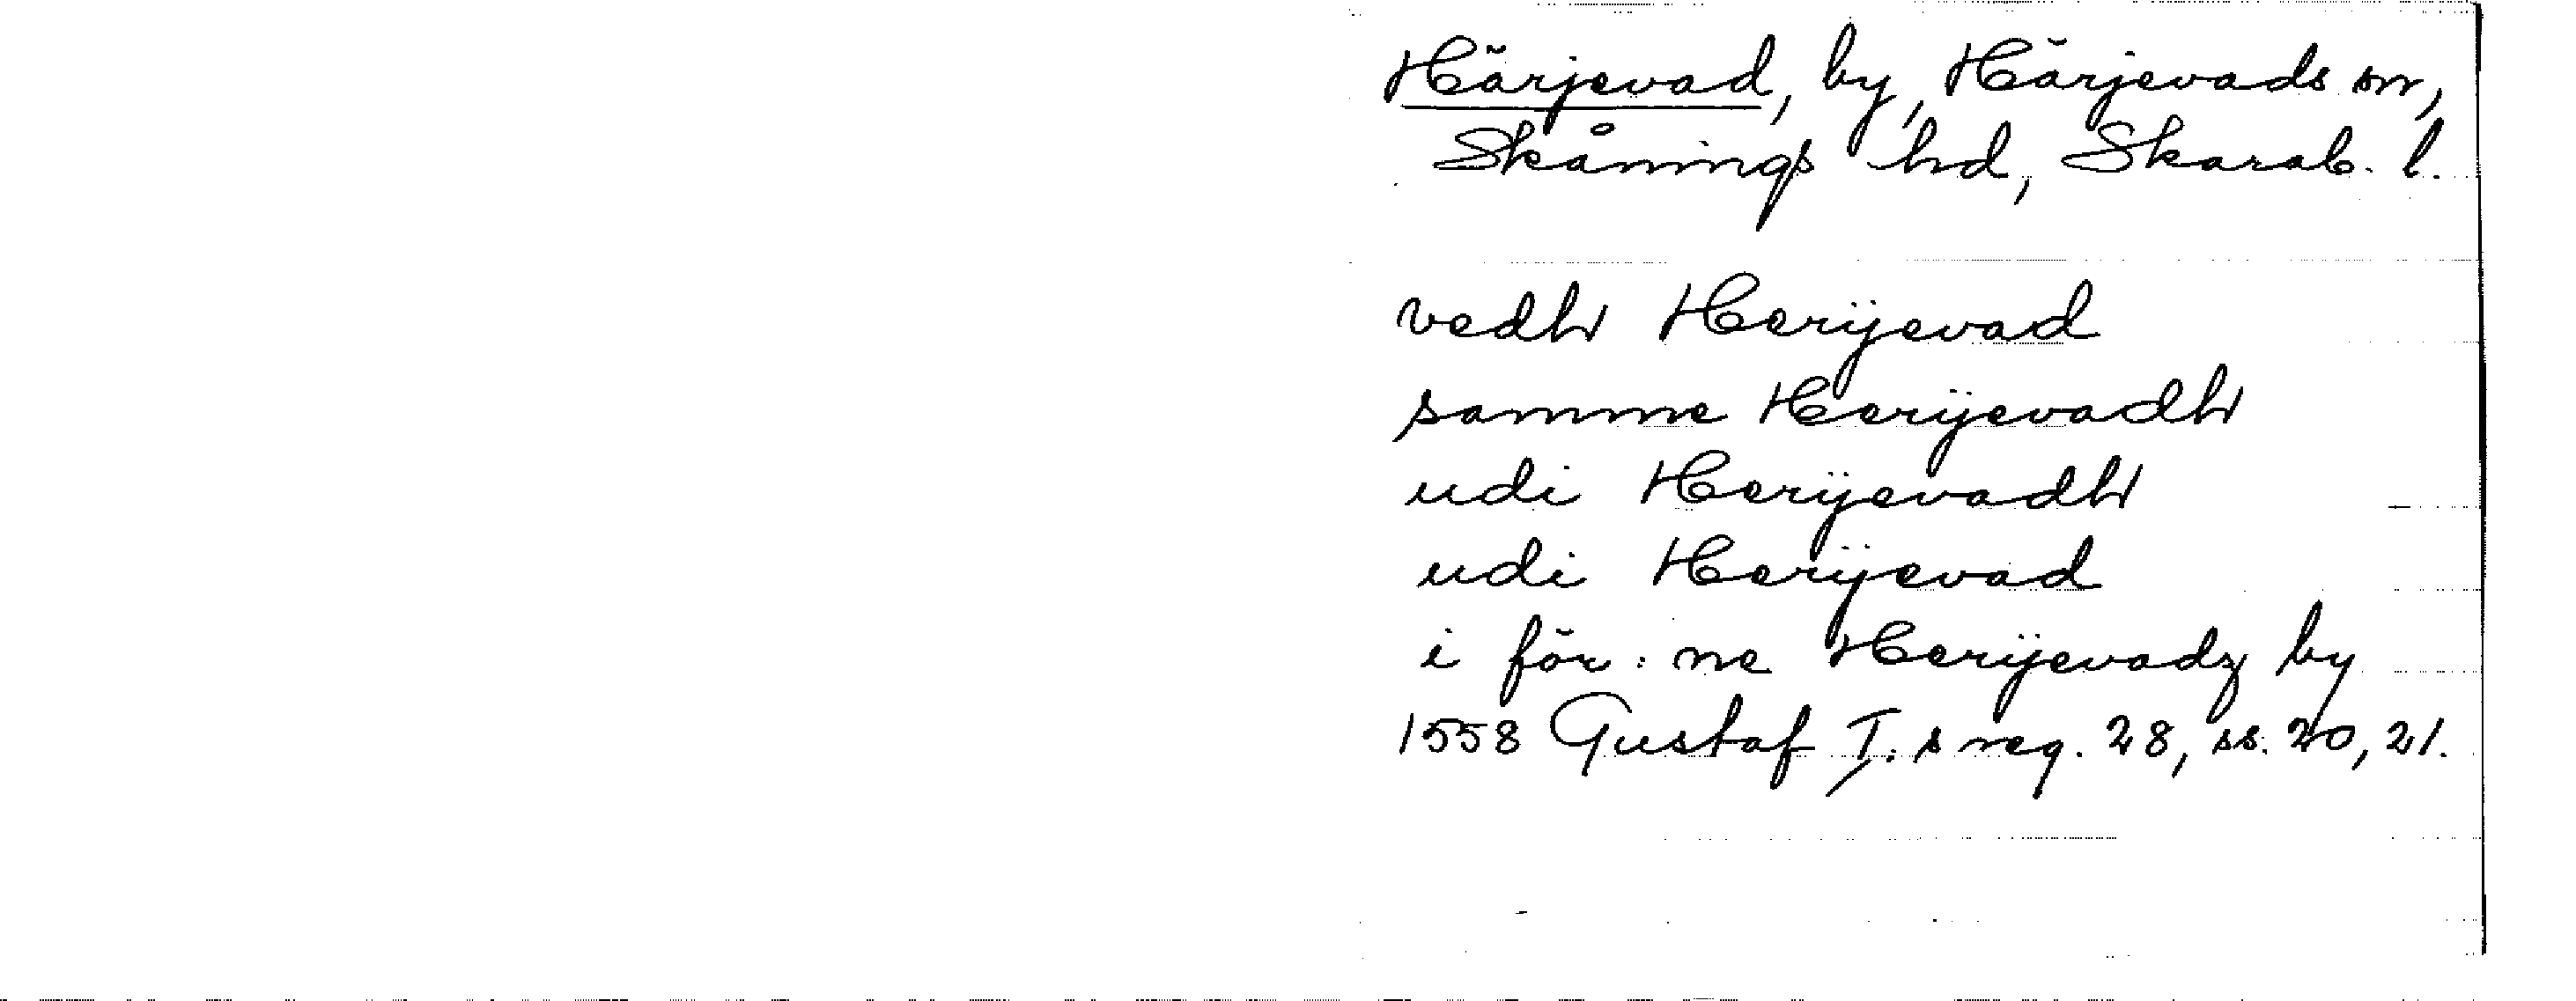 Härjevad, by, Härjevads sn,
Skånings hd, Skarab. l.
vedh Herijevad
samme Herijevadh
udi Herijevadh
udi Herijevad
i för:ne Herijevadz by
1558 Gustaf I.s reg. 28, ss. 20, 21.